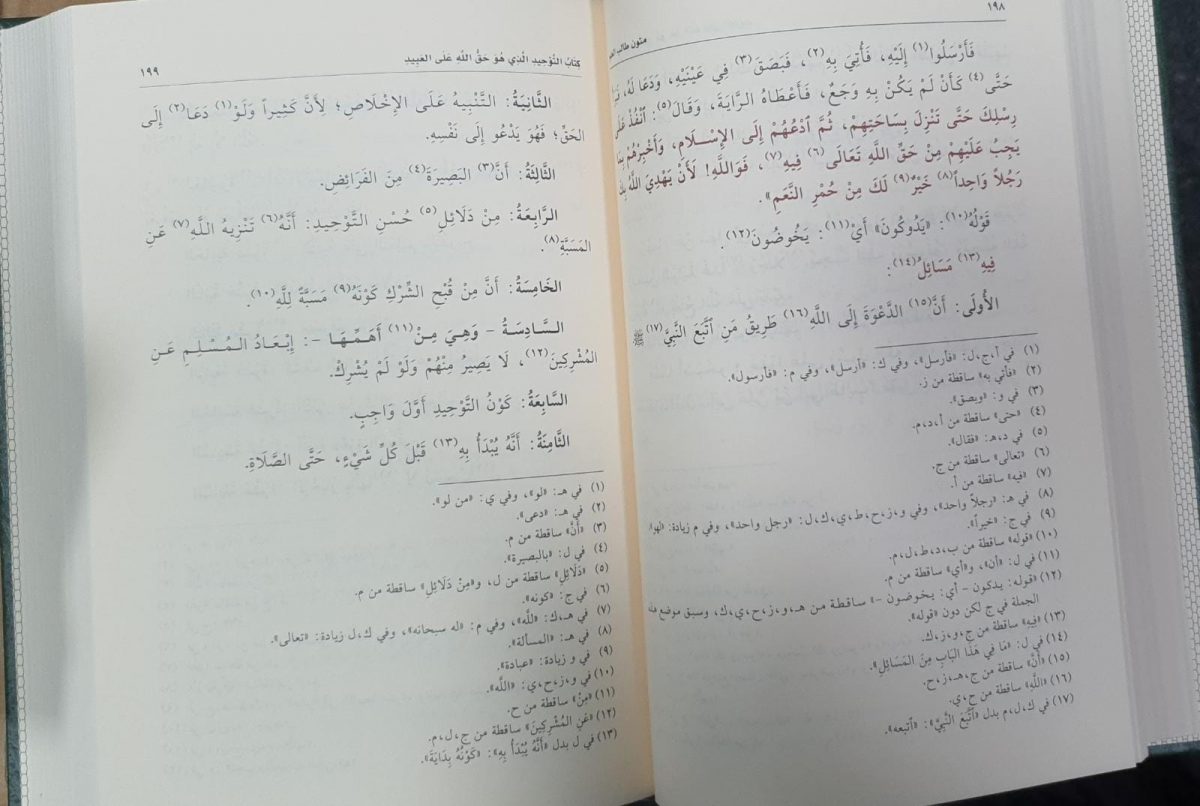 ١٩٨
متون طالب
فَأَرْسَلُوا(١) إِلَيْهِ، فَأُتِيَ بِهِ(٢)، فَبَصَقَ(٣) فِي عَيْنَيْهِ، وَدَعَا لَهُ،
حَتَّى(٤) كَأَنْ لَمْ يَكُنْ بِهِ وَجَعٌ، فَأَعْطَاهُ الرَّايَةَ، وَقَالَ(٥): ٱنْفُذْ عَلَى
رِسْلِكَ حَتَّى تَنْزِلَ بِسَاحَتِهِمْ، ثُمَّ ٱدْعُهُمْ إِلَى الإِسْلَامِ، وَأَخْبِرْهُمْ بِمَا
يَجِبُ عَلَيْهِمْ مِنْ حَقِّ اللَّهِ تَعَالَى(٦) فِيهِ(٧)، فَوَاللَّهِ! لَأَنْ يَهْدِيَ اللَّهُ بِكَ
رَجُلاً وَاحِداً(٨) خَيْرٌ(٩) لَكَ مِنْ حُمْرِ النَّعَمِ».
قَوْلُهُ(١٠): «يَدُوكُونَ» أَيْ(١١): يَخُوضُونَ(١٢).
فِيهِ(١٣) مَسَائِلُ(١٤):
الأُولَى: أَنَّ(١٥) الدَّعْوَةَ إِلَى اللَّهِ(١٦) طَرِيقُ مَنِ ٱتَّبَعَ النَّبِيَّ(١٧) ﷺ
(١) في أ،ج،ل: «فأرسل»، وفي ك: «أرسل»، وفي م: «فأرسول».
(٢) «فأتي به» ساقطة من ز.
(٣) في و: «وبصق».
(٤) «حتى» ساقطة من أ،د،م.
(٥) في د،هـ: «فقال».
(٦) «تعالى» ساقطة من ج.
(٧) «فيه» ساقطة من أ.
(٨) في هـ: «رجلاً واحد»، وفي و،ز،ح،ط،ي،ك،ل: «رجل واحد»، وفي م زيادة: «لهو».
(٩) في ج: «خيراً».
(١٠) «قوله» ساقطة من ب،د،ط،ل،م.
(١١) في ل: «أن»، و«أي» ساقطة من م.
(١٢) «قوله: يدكون - أي: يخوضون -» ساقطة من هـ،و،ز،ح،ي،ك، وسبق موضع هذه
الجملة في ج لكن دون «قوله».
(١٣) «فيه» ساقطة من ج،و،ز،ك.
(١٤) في ل: «مَا فِي هَذَا البَابِ مِنَ المَسَائِلِ».
(١٥) «أَنَّ» ساقطة من ج،هـ،ز،ح.
(١٦) «اللَّهِ» ساقطة من ح،ي.
(١٧) في ك،ل،م بدل «ٱتَّبَعَ النَّبِيَّ»: «أتبعه».
كِتَابُ التَّوْحِيدِ الَّذِي هُوَ حَقُّ اللَّهِ عَلَى العَبِيدِ
١٩٩
الثَّانِيَةُ: التَّنْبِيهُ عَلَى الإِخْلَاصِ؛ لِأَنَّ كَثِيراً وَلَوْ(١) دَعَا(٢) إِلَى
الحَقِّ؛ فَهُوَ يَدْعُو إِلَى نَفْسِهِ.
الثَّالِثَةُ: أَنَّ(٣) البَصِيرَةَ(٤) مِنَ الفَرَائِضِ.
الرَّابِعَةُ: مِنْ دَلَائِلِ(٥) حُسْنِ التَّوْحِيدِ: أَنَّهُ(٦) تَنْزِيهُ اللَّهِ(٧) عَنِ
المَسَبَّةِ(٨).
الخَامِسَةُ: أَنَّ مِنْ قُبْحِ الشِّرْكِ كَوْنَهُ(٩) مَسَبَّةً لِلَّهِ(١٠).
السَّادِسَةُ - وَهِيَ مِنْ(١١) أَهَمِّهَا -: إِبْعَادُ المُسْلِمِ عَنِ
المُشْرِكِينَ(١٢)، لَا يَصِيرُ مِنْهُمْ وَلَوْ لَمْ يُشْرِكْ.
السَّابِعَةُ: كَوْنُ التَّوْحِيدِ أَوَّلَ وَاجِبٍ.
الثَّامِنَةُ: أَنَّهُ يُبْدَأُ بِهِ(١٣) قَبْلَ كُلِّ شَيْءٍ، حَتَّى الصَّلَاةِ.
(١) في هـ: «لو»، وفي ي: «من لو».
(٢) في هـ: «دعى».
(٣) «أَنَّ» ساقطة من م.
(٤) في ل: «بالبصيرة».
(٥) «دَلَائِلِ» ساقطة من ل، و«مِنْ دَلَائِلِ» ساقطة من م.
(٦) في ج: «كونه».
(٧) في هـ،ك: «للَّه»، وفي م: «له سبحانه»، وفي ك،ل زيادة: «تعالى».
(٨) في هـ: «المسألة».
(٩) في و زيادة: «عبادة».
(١٠) في و،ز،ح،ي: «اللَّه».
(١١) «مِنْ» ساقطة من ح.
(١٢) «عَنِ المُشْرِكِينَ» ساقطة من ج،ل،م.
(١٣) في ل بدل «أَنَّهُ يُبْدَأُ بِهِ»: «كَوْنُهُ بِدَايَةَ».